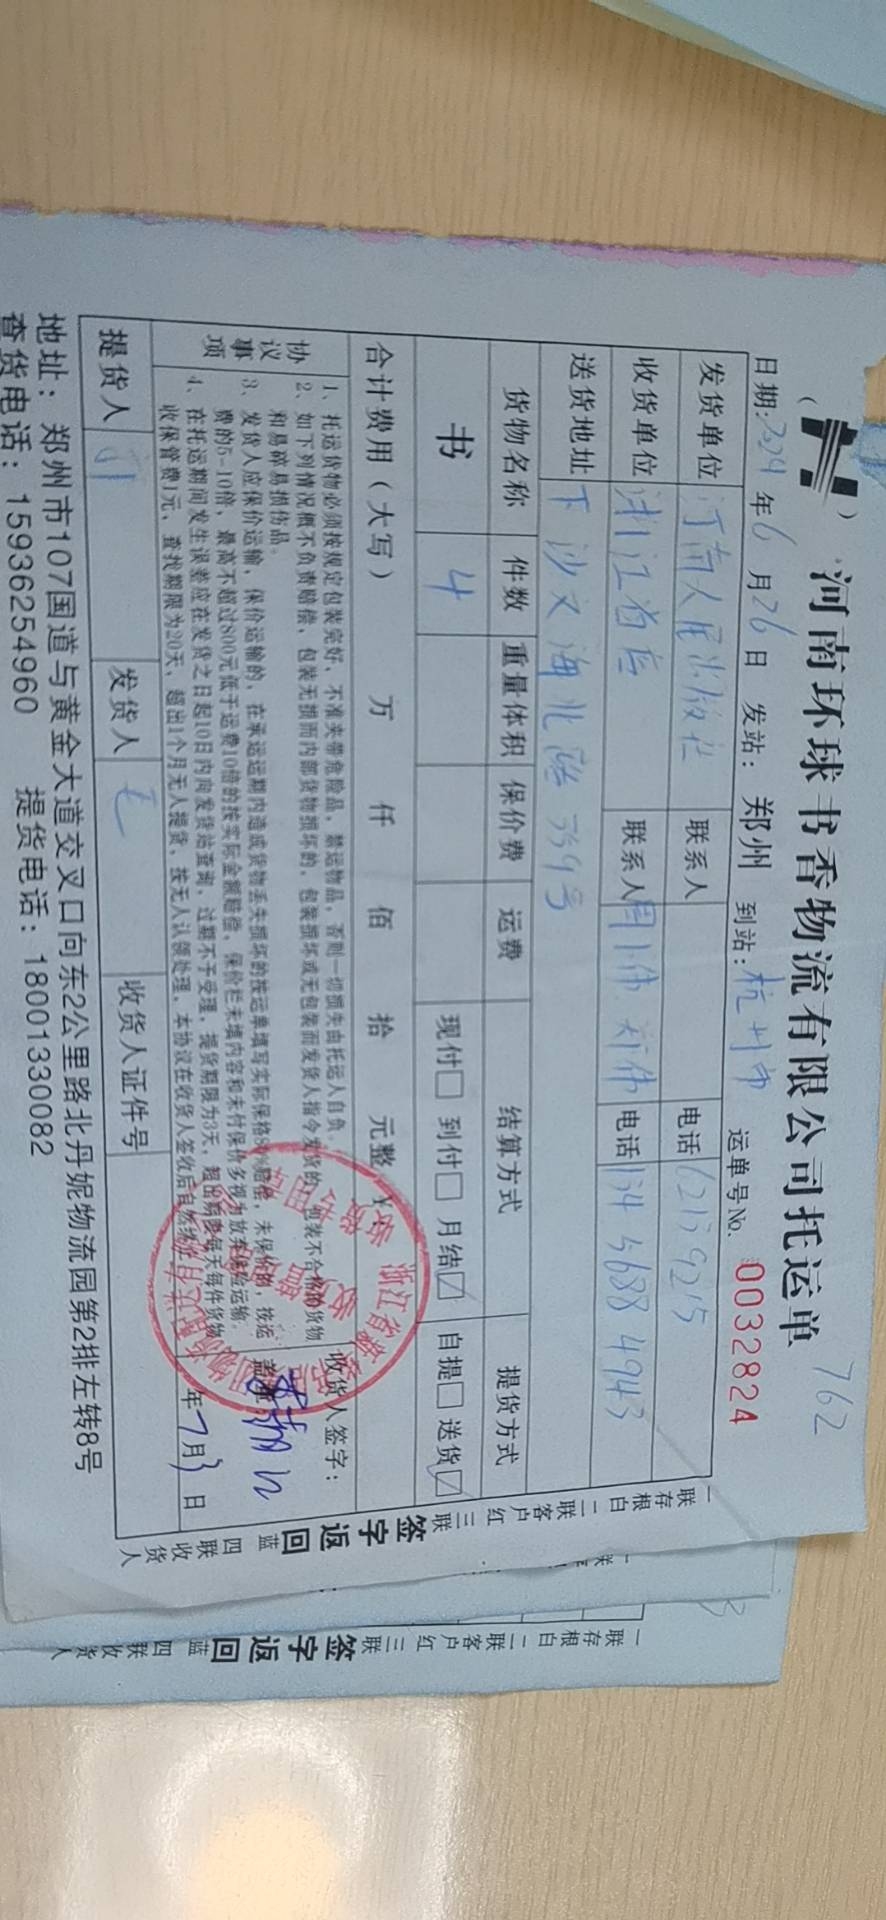 762
河南环球书香物流有限公司托运单
日期:2024年6月26日 发站:郑州 到站:杭州市 运单号No. 0032824
发货单位 河南人民出版社 联系人 电话
收货单位 浙江省店 联系人 电话
送货地址 下沙文海北路
货物名称 件数 重量体积 保价费 运费 结算方式 提货方式
书 4 现付□ 到付□ 月结☑ 自提□ 送货☑
合计费用(大写) 万 仟 佰 拾 元整 ¥
协议事项
1、托运货物必须按规定包装完好,不准夹带危险品,禁运物品,否则一切损失由托运人自负。
2、如下列情况概不负责赔偿,包装无损而内部货物损坏的,包装损坏或无包装而发货人指令发货的,包装不合格的货物
和易碎易损伤品。
3、发货人应保价运输,保价运输的,在承运期内造成货物丢失损坏的按运单填写实际保格80%赔偿,未保价的,按运
费的5-10倍,最高不超过800元低于运费10倍的按实际金额赔偿,保价栏未填内容和未付保价多视为放弃保险运输。
4、在托运期间发生误差应在发货之日起10日内向发货站查询,过期不予受理,提货期限为3天,超出期度每天每件货物
收保管费1元,查找期限为20天,超出1个月无人提货,按无人认领处理,本协议在收货人签收后自然终止
收货人签字:
盖章:
年7月3日
提货人 发货人 收货人证件号
地址:郑州市107国道与黄金大道交叉口向东2公里路北丹妮物流园第2排左转8号
查货电话:15936254960 提货电话:18001330082
一联存根白 二联客户红 三联签字返回蓝 四联收货人
一联存根白 二联客户红 三联签字返回蓝 四联收货人